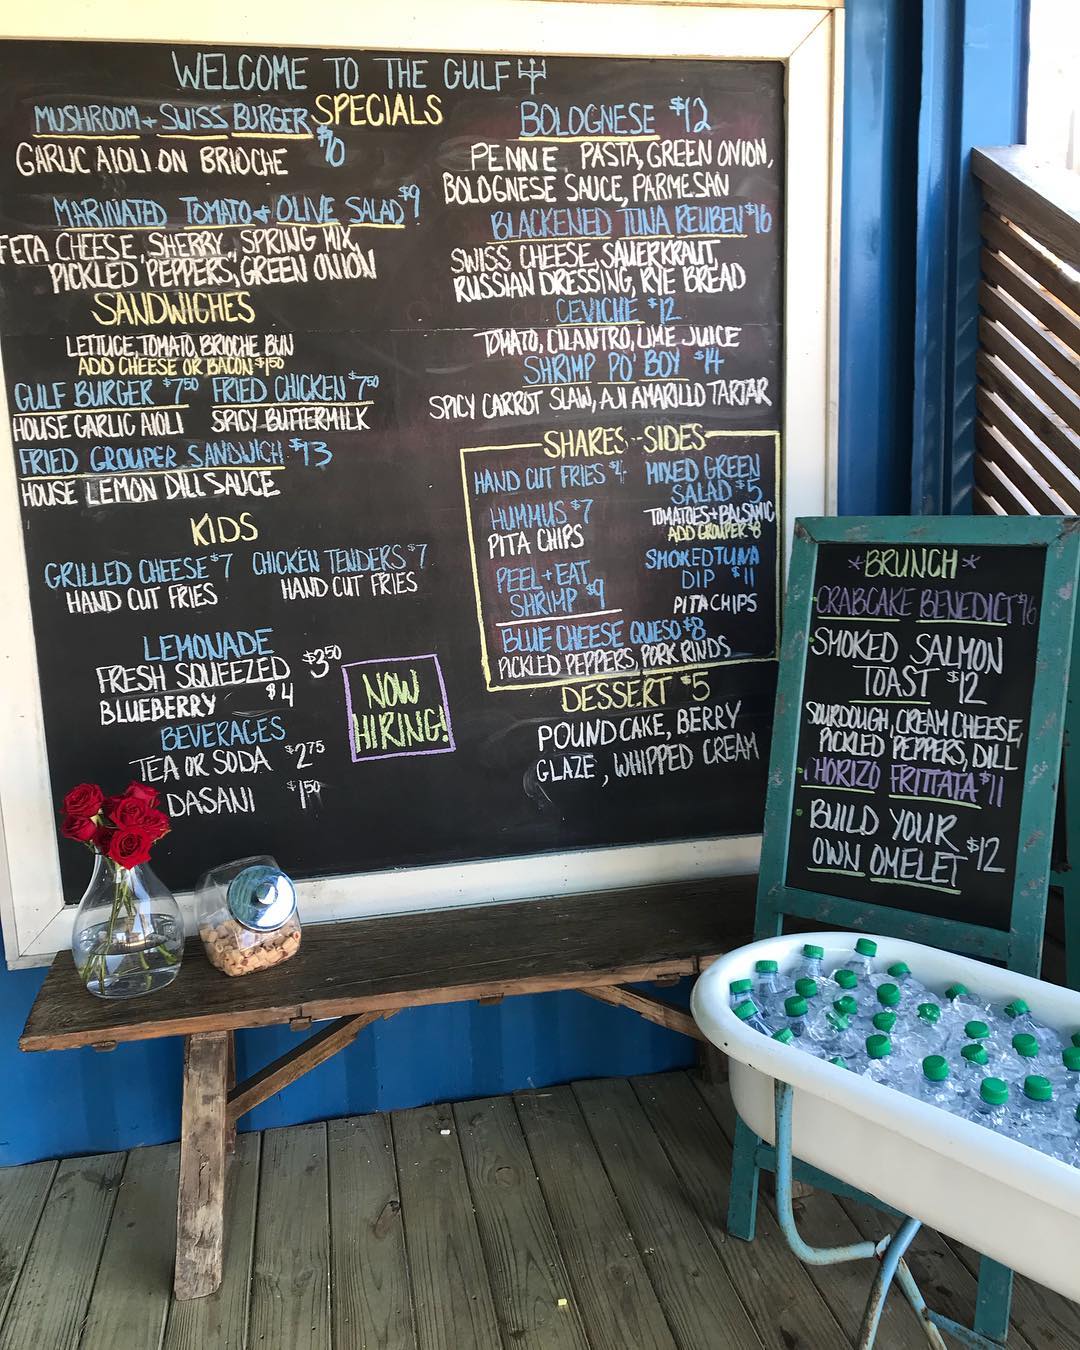 WELCOME TO THE GULF
SPECIALS
MUSHROOM + SWISS BURGER $10
GARLIC AIOLI ON BRIOCHE
MARINATED TOMATO + OLIVE SALAD $9
FETA CHEESE, SHERRY, SPRING MIX,
PICKLED PEPPERS, GREEN ONION
SANDWICHES
LETTUCE, TOMATO, BRIOCHE BUN
ADD CHEESE OR BACON $1.50
GULF BURGER $7.50 FRIED CHICKEN $7.50
HOUSE GARLIC AIOLI SPICY BUTTERMILK
FRIED GROUPER SANDWICH $13
HOUSE LEMON DILL SAUCE
KIDS
GRILLED CHEESE $7 CHICKEN TENDERS $7
HAND CUT FRIES HAND CUT FRIES
LEMONADE
FRESH SQUEEZED $3.50
BLUEBERRY $4
BEVERAGES
TEA OR SODA $2.75
DASANI $1.50
NOW
HIRING!
BOLOGNESE $12
PENNE PASTA, GREEN ONION,
BOLOGNESE SAUCE, PARMESAN
BLACKENED TUNA REUBEN $16
SWISS CHEESE, SAUERKRAUT,
RUSSIAN DRESSING, RYE BREAD
CEVICHE $12
TOMATO, CILANTRO, LIME JUICE
SHRIMP PO' BOY $14
SPICY CARROT SLAW, AJI AMARILLO TARTAR
SHARES - SIDES
HAND CUT FRIES $4
HUMMUS $7
PITA CHIPS
PEEL + EAT
SHRIMP $9
MIXED GREEN
SALAD $5
TOMATOES + BALSAMIC
ADD GROUPER $8
SMOKED TUNA
DIP $11
PITA CHIPS
BLUE CHEESE QUESO $8
PICKLED PEPPERS, PORK RINDS
DESSERT $5
POUND CAKE, BERRY
GLAZE, WHIPPED CREAM
*BRUNCH*
CRABCAKE BENEDICT $16
SMOKED SALMON
TOAST $12
SOURDOUGH, CREAM CHEESE,
PICKLED PEPPERS, DILL
CHORIZO FRITTATA $11
BUILD YOUR
OWN OMELET $12